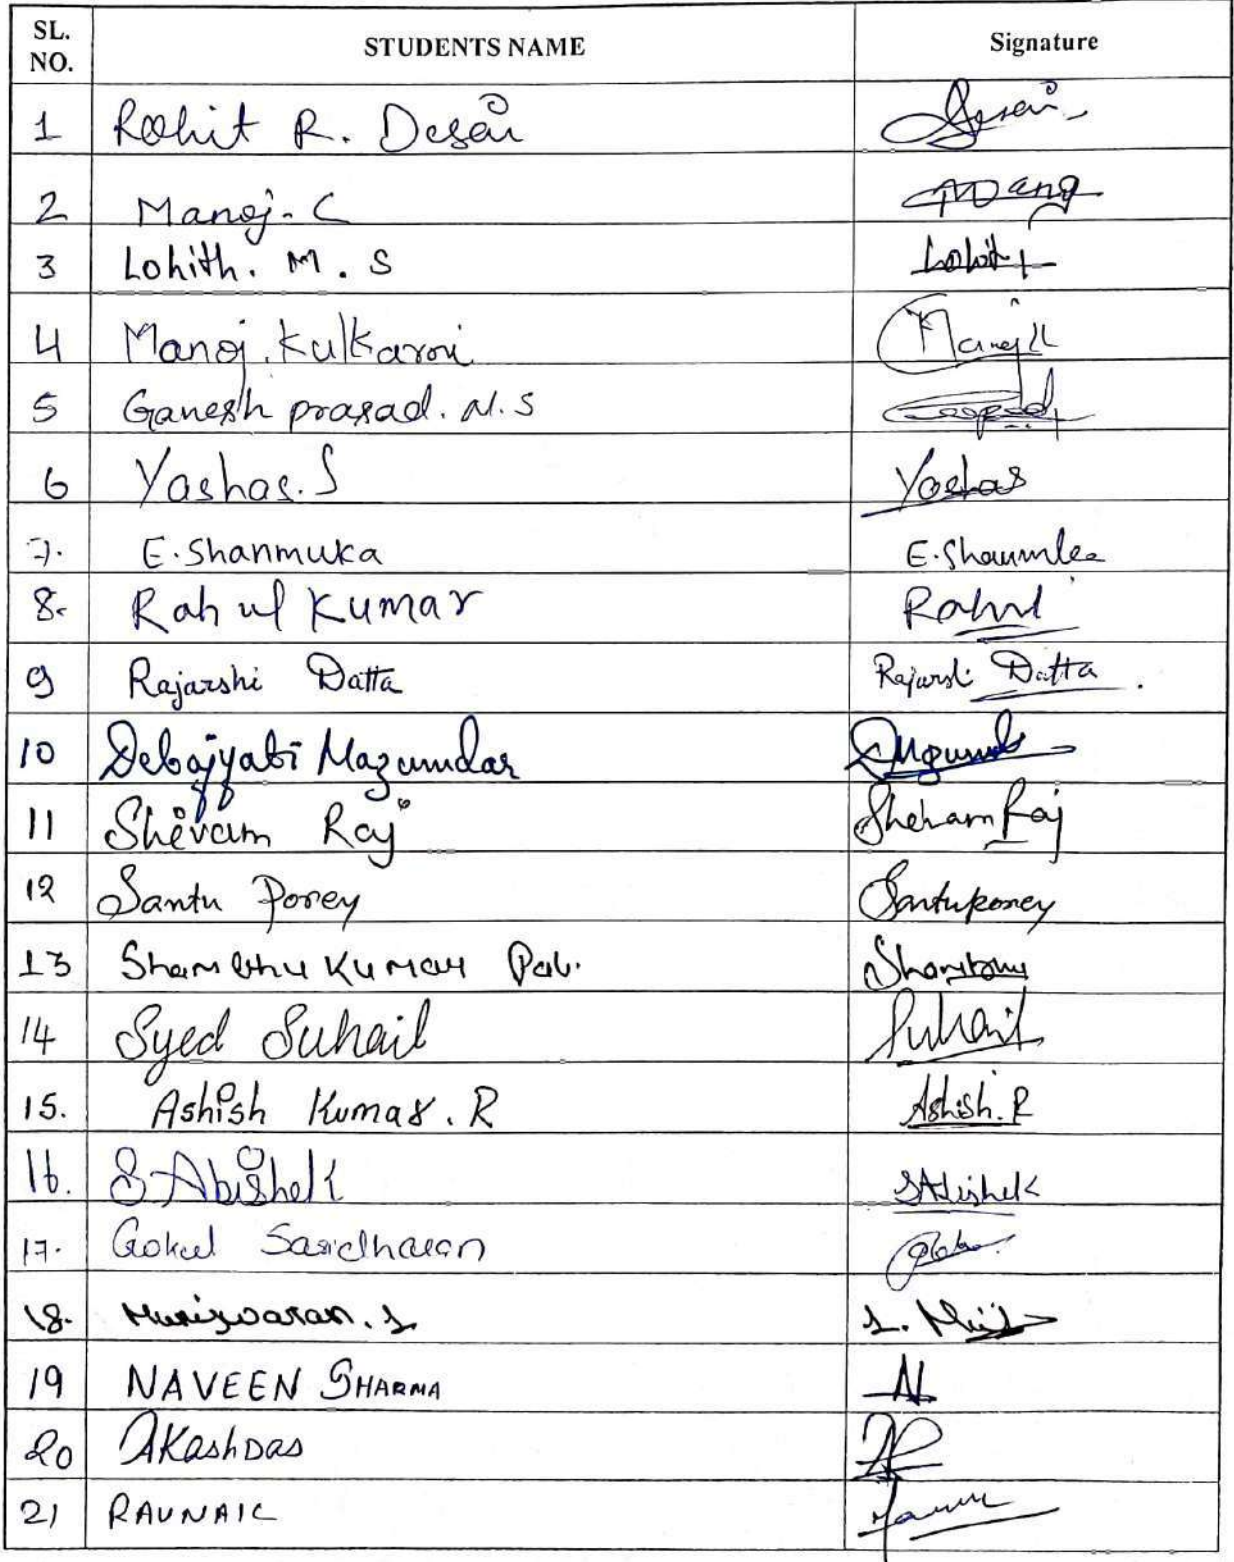 SL. NO. STUDENTS NAME Signature
1 Rohit R. Desai Desai
2 Manoj. C Manoj
3 Lohith. M. S Lohith
4 Manoj. Kulkarni Manoj K
5 Ganesh prasad. N. S
6 Yashas. S Yashas
7. E. Shanmuka E. Shanmuka
8. Rahul Kumar Rahul
9 Rajarshi Datta Rajarshi Datta
10 Debajyoti Mazumdar
11 Shivam Raj Shivam Raj
12 Santu Porey Santu Porey
13 Shambhu Kumar
14 Syed Suhail Suhail
15. Ashish Kumar. R Ashish. R
16. S. Abishek S Abishek
17. Gokul Sasidharan
18. Muniswaran. S
19 NAVEEN SHARMA N
20 Akash Das
21 RAUNAK